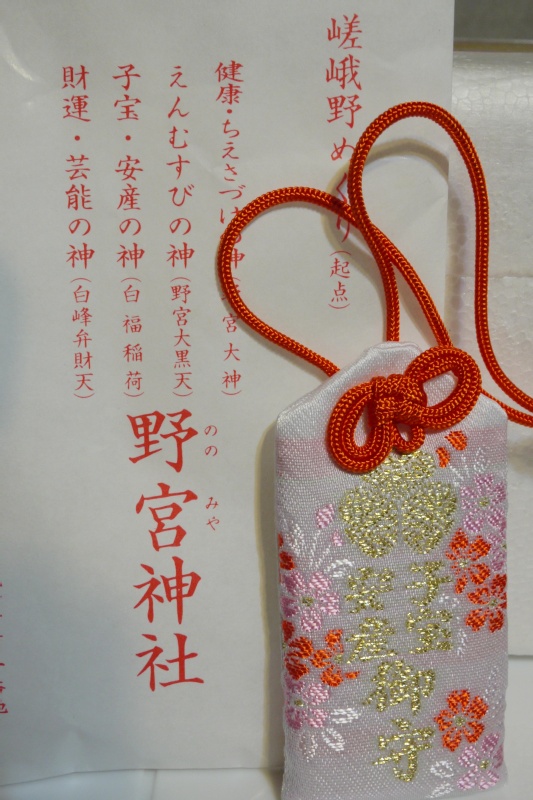 嵯峨野めぐり(起点)
健康・ちえさづけの神(宮大神)
えんむすびの神(野宮大黒天)
子宝・安産の神(白福稲荷)
財運・芸能の神(白峰弁財天)
野宮神社
ののみや
子宝
安産
御守